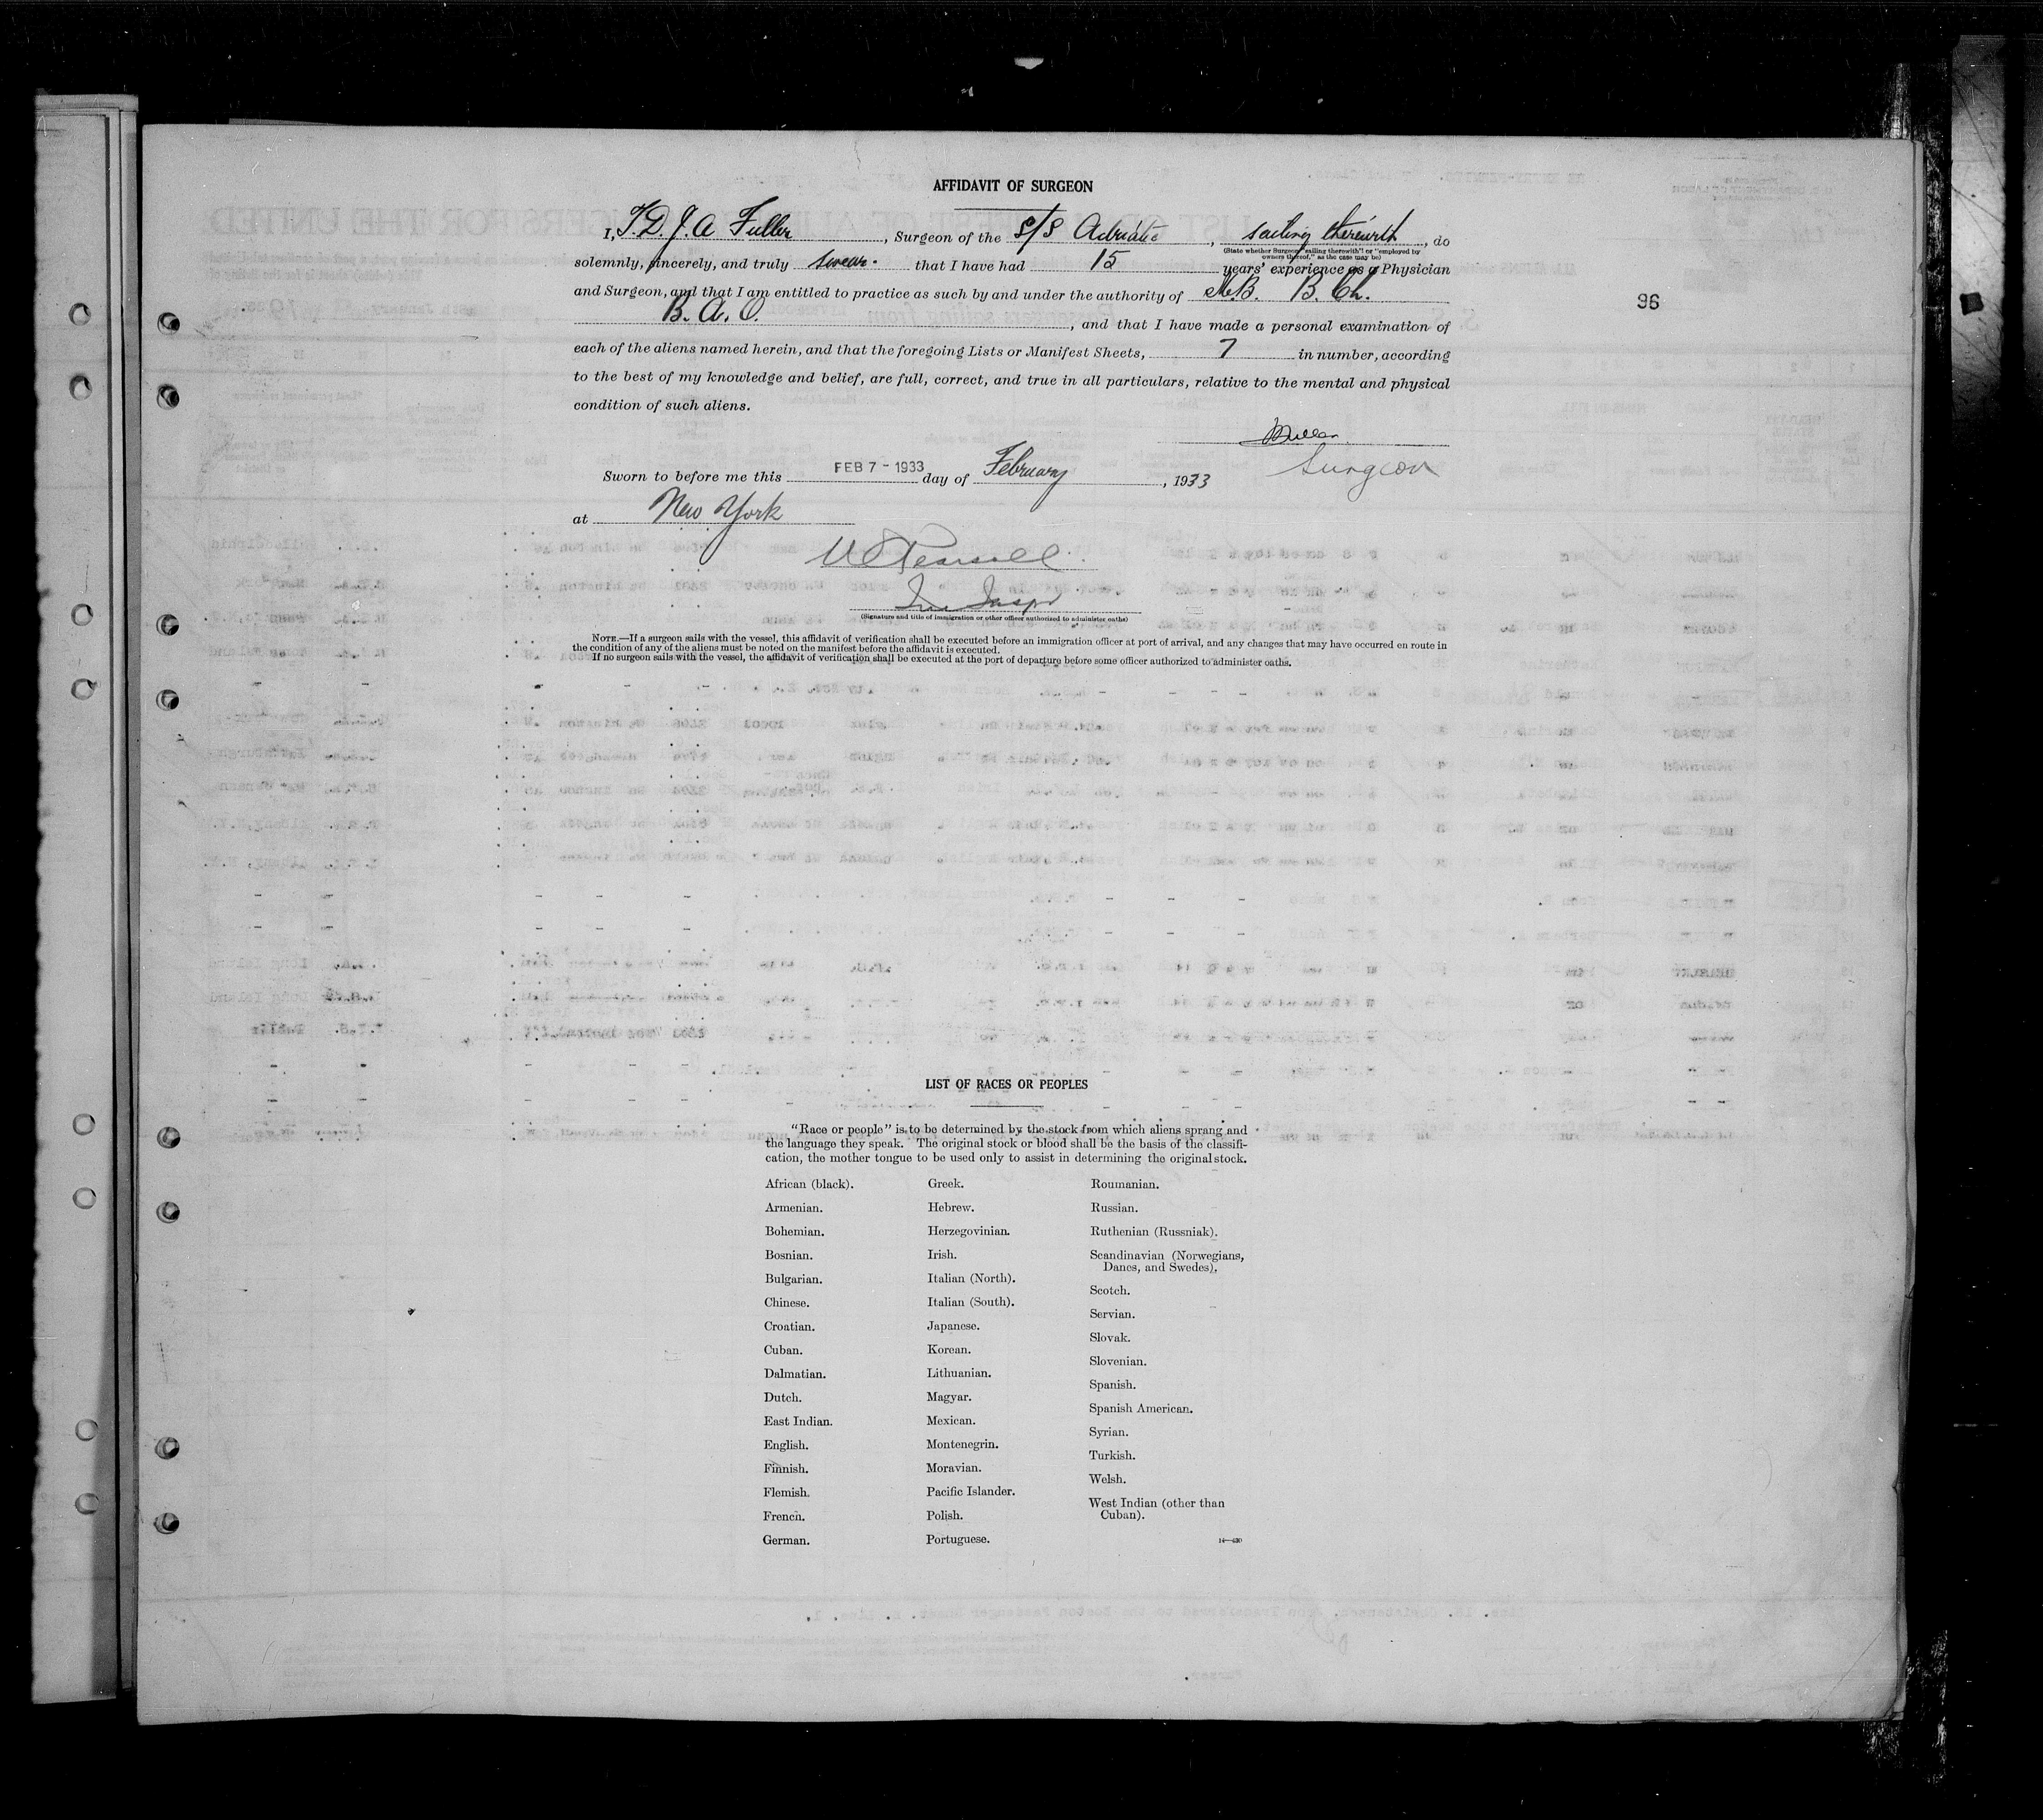 AFFIDAVIT OF SURGEON
I, T. D. J. A Fuller, Surgeon of the S/S Adriatic, sailing therewith, do
(State whether Surgeon "sailing therewith" or "employed by
owners thereof," as the case may be)
solemnly, sincerely, and truly swear. that I have had 15 years' experience as a Physician
and Surgeon, and that I am entitled to practice as such by and under the authority of M.B. B. Ch.
B. A. O., and that I have made a personal examination of
each of the aliens named herein, and that the foregoing Lists or Manifest Sheets, 7 in number, according
to the best of my knowledge and belief, are full, correct, and true in all particulars, relative to the mental and physical
condition of such aliens.
96
Surgeon
Sworn to before me this FEB 7 - 1933 day of February, 1933
at New York
(Signature and title of immigration or other officer authorized to administer oaths)
NOTE.—If a surgeon sails with the vessel, this affidavit of verification shall be executed before an immigration officer at port of arrival, and any changes that may have occurred en route in
the condition of any of the aliens must be noted on the manifest before the affidavit is executed.
If no surgeon sails with the vessel, the affidavit of verification shall be executed at the port of departure before some officer authorized to administer oaths.
LIST OF RACES OR PEOPLES
"Race or people" is to be determined by the stock from which aliens sprang and
the language they speak. The original stock or blood shall be the basis of the classifi-
cation, the mother tongue to be used only to assist in determining the original stock.
African (black).
Armenian.
Bohemian.
Bosnian.
Bulgarian.
Chinese.
Croatian.
Cuban.
Dalmatian.
Dutch.
East Indian.
English.
Finnish.
Flemish.
French.
German.
Greek.
Hebrew.
Herzegovinian.
Irish.
Italian (North).
Italian (South).
Japanese.
Korean.
Lithuanian.
Magyar.
Mexican.
Montenegrin.
Moravian.
Pacific Islander.
Polish.
Portuguese.
Roumanian.
Russian.
Ruthenian (Russniak).
Scandinavian (Norwegians,
Danes, and Swedes).
Scotch.
Servian.
Slovak.
Slovenian.
Spanish.
Spanish American.
Syrian.
Turkish.
Welsh.
West Indian (other than
Cuban).